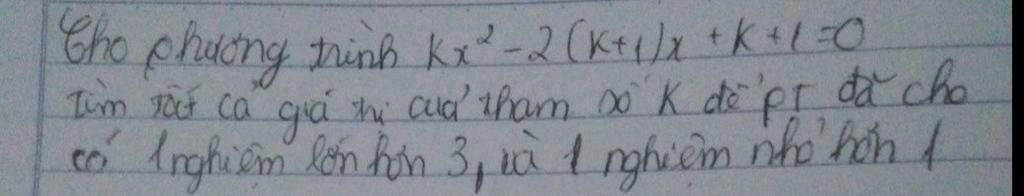 Cho phương trình kx² - 2(k+1)x + k+1=0
Tìm tất cả giá trị của tham số K để PT đã cho
có 1 nghiệm lớn hơn 3, và 1 nghiệm nhỏ hơn 1